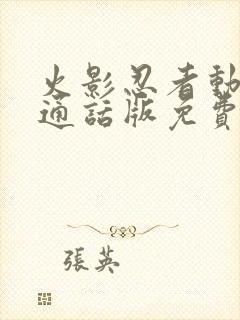 火影忍者動
通話版免費
張英